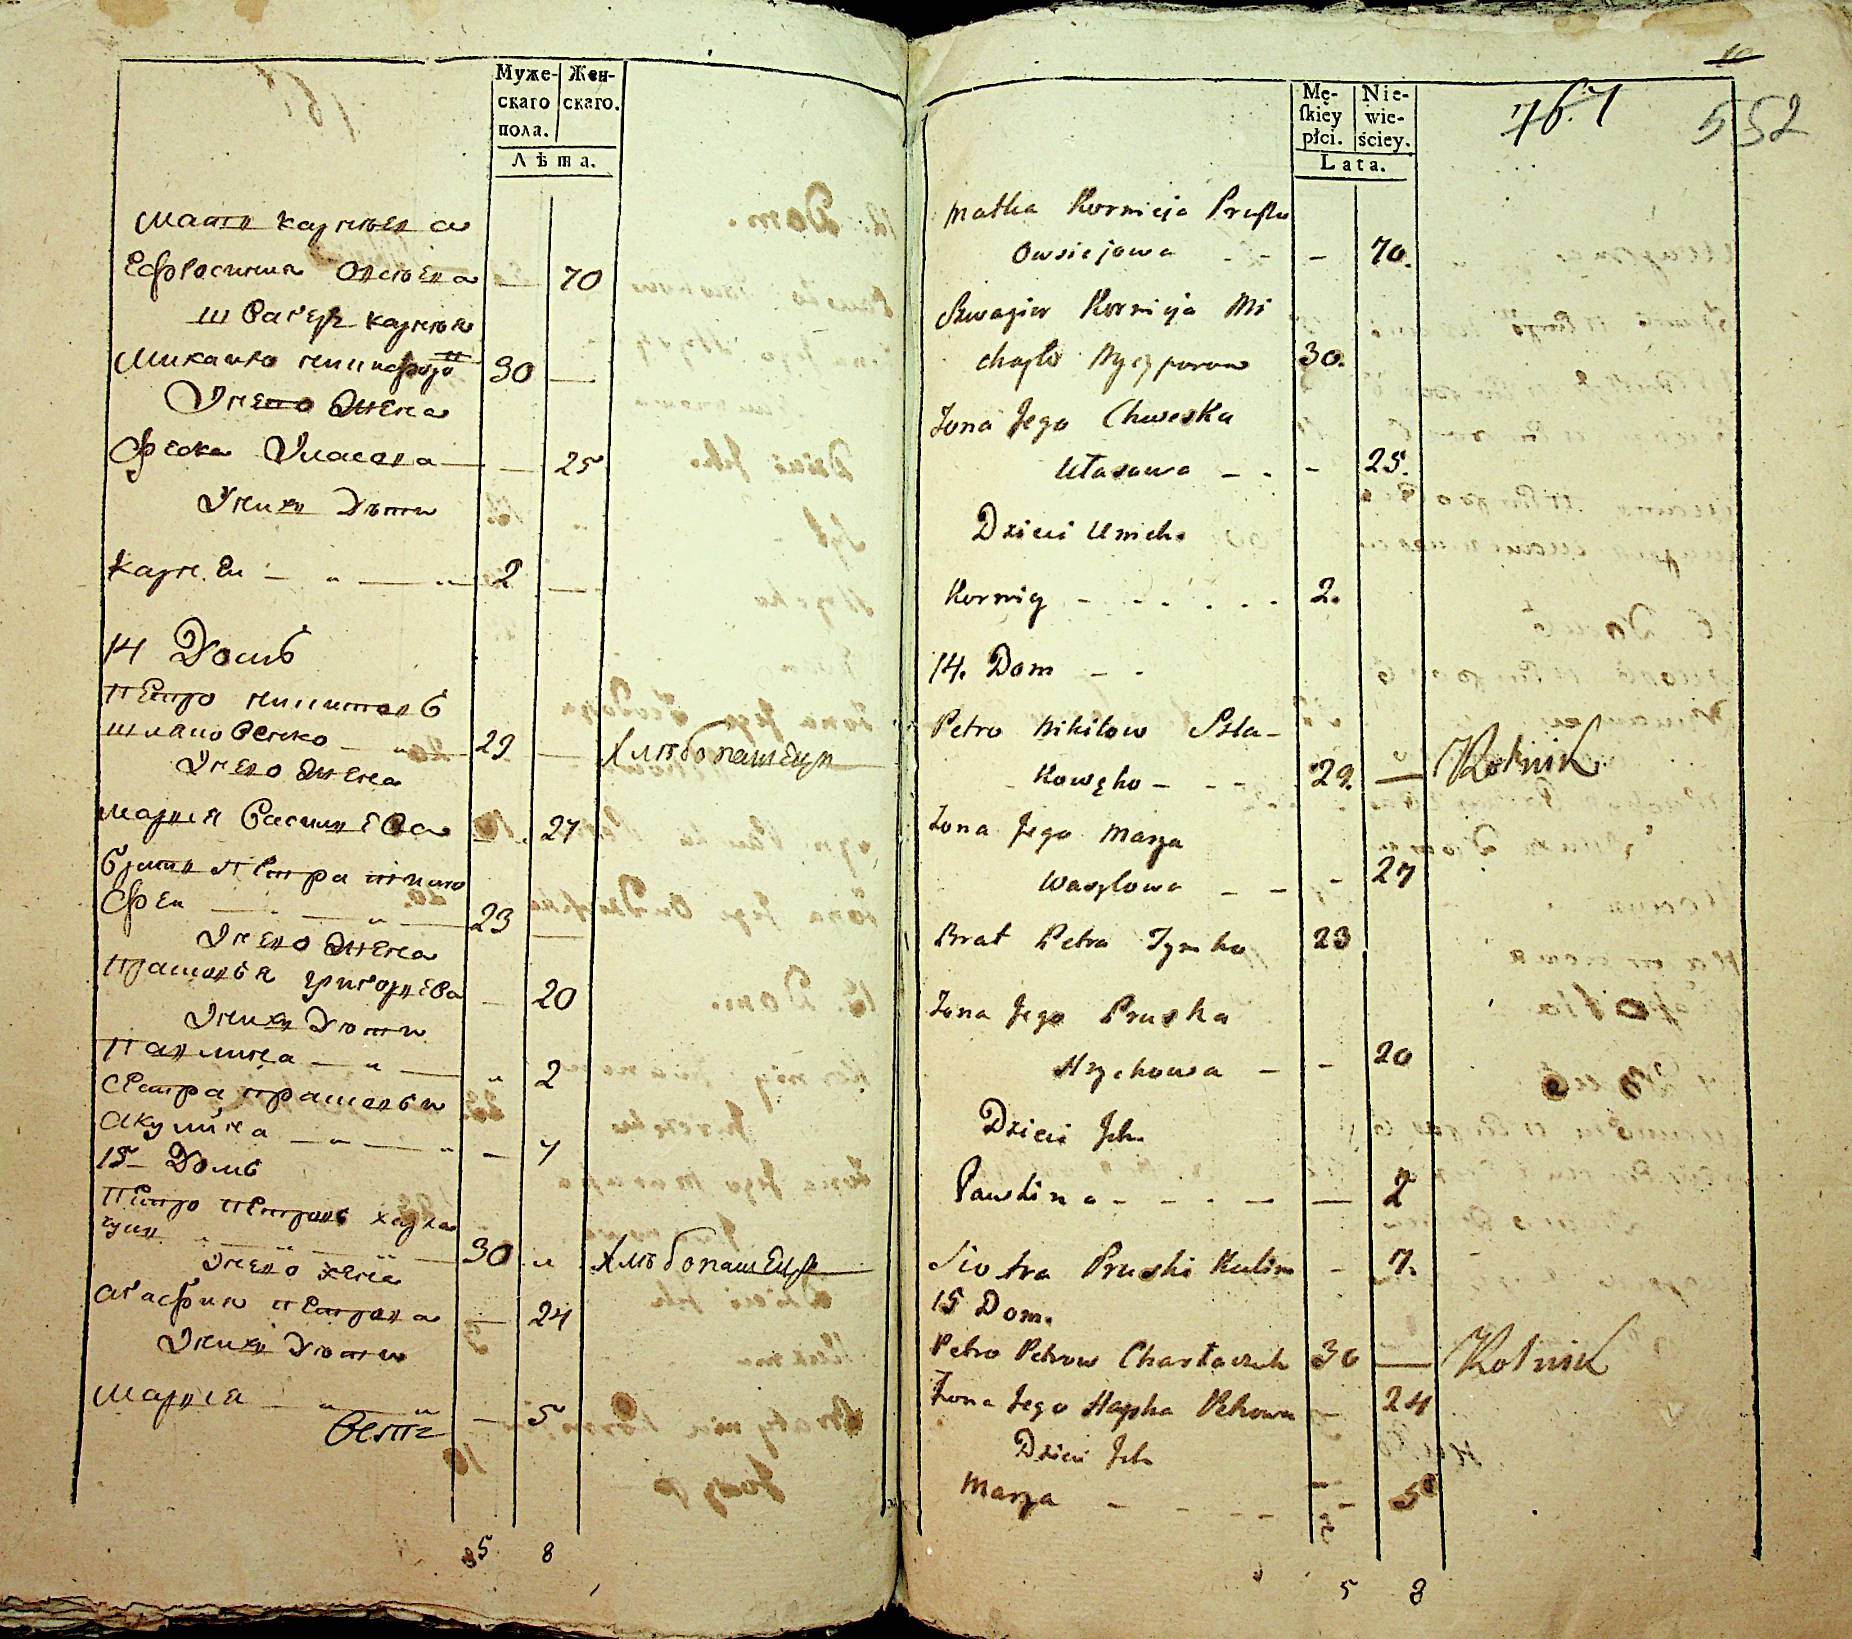 Муже-
скаго
пола.
Жен-
скаго.
Лѣта.
Мати карнѣева
Ефросиния Овсѣева — 70
швагер карнѣя
Михаило никифоро 30 —
У нево жена
Феска Уласова — — 25
У них дѣти
Карней — „ — „ 2 —
14 Домъ
Петро никитовъ
шлаповенко — „ — 29 — Хлѣбопашецъ
У нево жена
Мария Василиева 27
брат Петра тимо
фей — „ — 23 —
У нево жена
Прасковья григорьева — 20
У них дѣти
Павлина — „ — „ 2
сестра прасковьи
Акулина — „ — „ — 7
15 Домъ
Петро Петровъ харла
чун „ — „ — „ — 30 „ Хлѣбопашецъ
У нево жена
Агафия Петрова — 24
У них дѣти
Мария — „ — „ — 5
5 8
Mę-
ſkiey
płci.
Nie-
wie-
ściey.
Lata.
767
552
Matka Kornieja Pruska
Owsiejowa - - - 70.
Szwagier Kornieja Mi
chayło Nyczyporow 30.
Zona Jego Chweska
Ułasowa - - - 25.
Dzieci Unich
Korniy - - - - - - 2.
14. Dom - -
Petro Nikitow Szla-
Kowęko - - - 29. — Rolnik
Zona Jego Marya
Wasylowa - - - 27
Brat Petra Tymko 23
Zona Jego Pruska
Hrychowa - - 20
Dzieci Ich
Pawlina - - - - — 2
Siostra Pruski Kulin - 7.
15 Dom.
Petro Petrow Charłaczuk 30 — Rolnik
Zona Jego Hapka Petrowa - 24
Dzieci Ich
Marya - - - - - 5
5 8